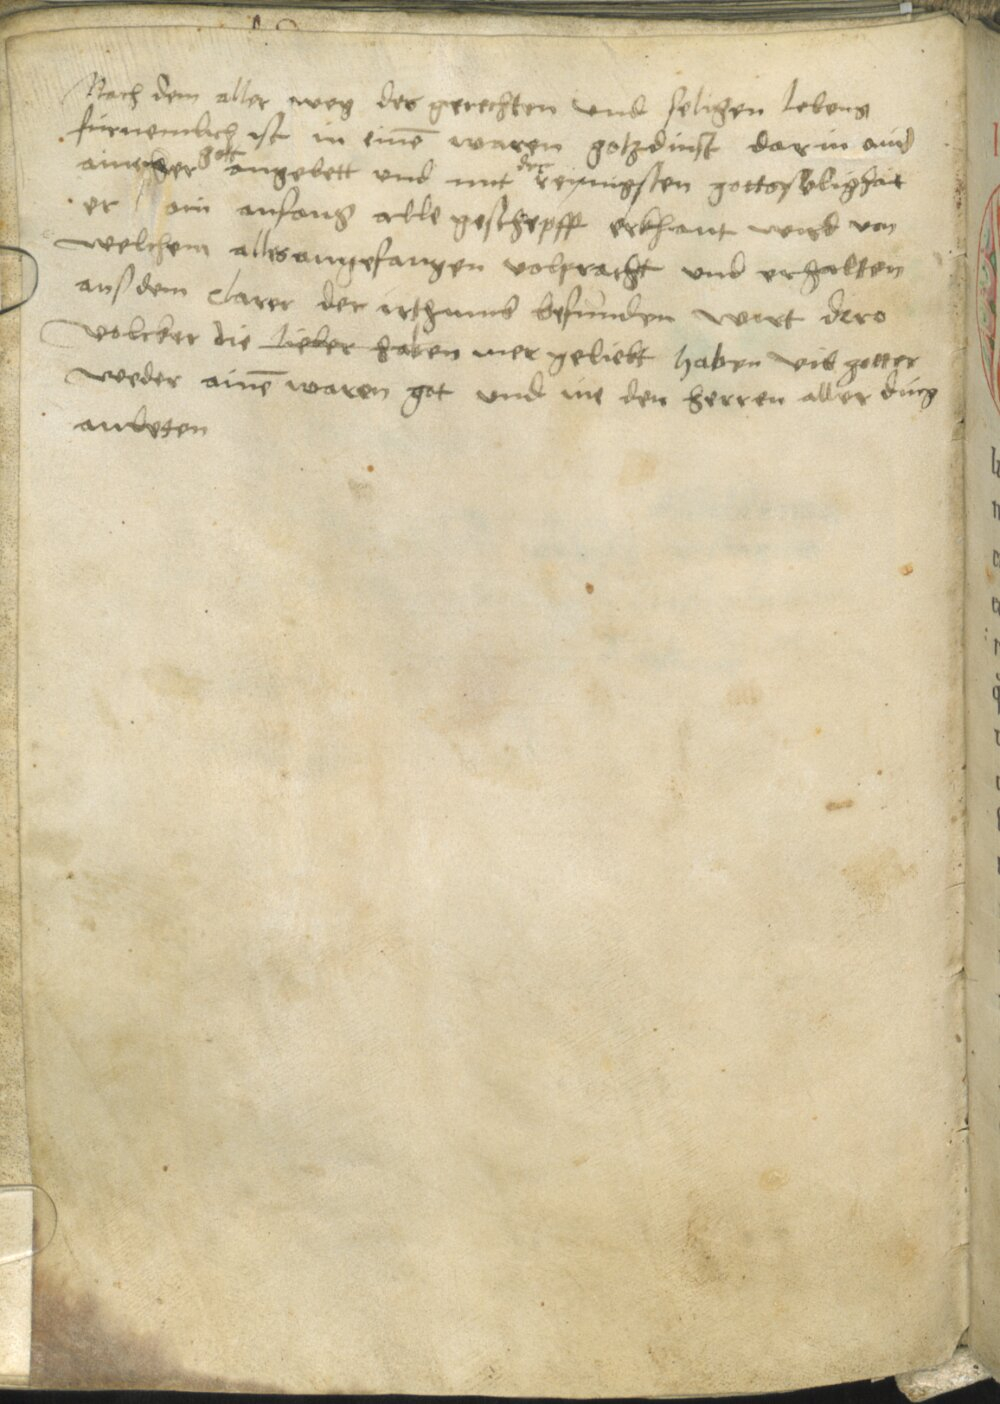 Nach dem aller weg des gerechten und seligen lebens
furnemlich ist in einē waren gotzdinst darin ain
ainicher gott angebett und mit der reynigsten gottosselighait
er ain anfang alle geschepff erkhant wird von
welchem alles angefangen volpracht und erhalten
auß dem clarer der irthumb befunden wirt dero
volcker die lieber haben mer geliebt haben vil gotter
weder ainē waren got und nie den herren aller ding
anbeten